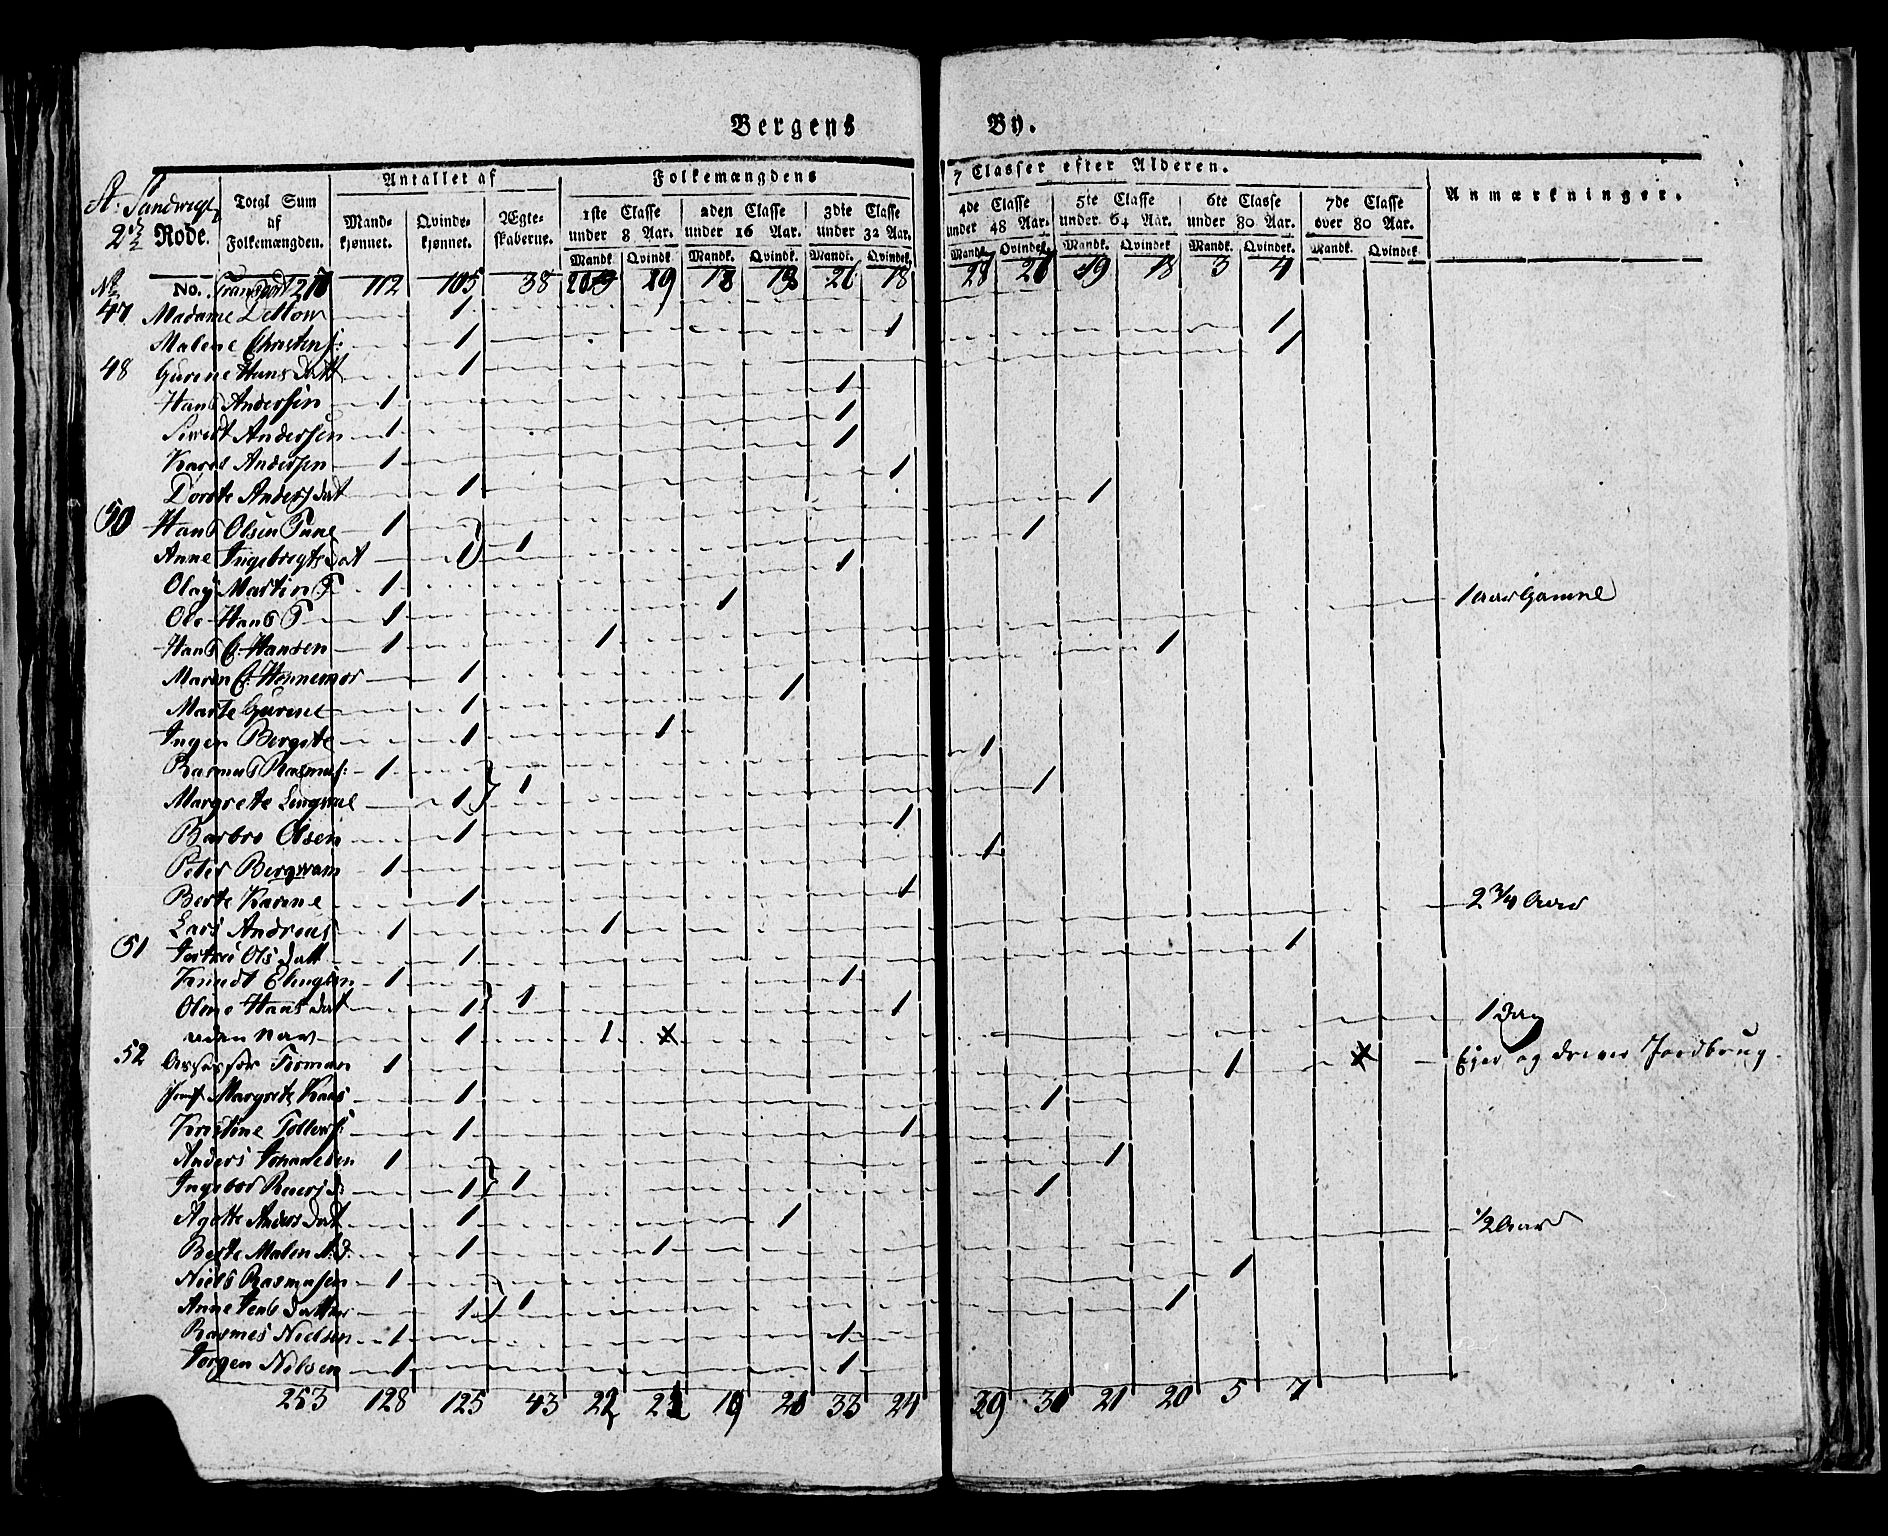 Bergens By.
St. Sandwigs
2den Rode.
Total Sum af Folkemængden.
Antallet af
Mandkjønnet. Qvindekjønnet. Ægteskaberne.
Folkemængdens 7 Classer efter Alderen.
1ste Classe under 8 Aar. 2den Classe under 16 Aar. 3die Classe under 32 Aar. 4de Classe under 48 Aar. 5te Classe under 64 Aar. 6te Classe under 80 Aar. 7de Classe over 80 Aar.
Mandk. Qvindek. Mandk. Qvindek. Mandk. Qvindek. Mandk. Qvindek. Mandk. Qvindek. Mandk. Qvindek. Mandk. Qvindek.
Anmærkninger.
No. Transport 112 105 38 19 18 26 18 28 19 18 3 4
47 Madame 1 1
Malene Christens: 1 1
48 Gurene Hans Datt 1 1
Hans Andersen 1 1
Siwert Andersen 1 1
Andersen 1 1
Dorote Anders dat 1 1
50 Hans Olsen Tune 1 1
Anne Ingebregts Dat 1 1 1
Olay Martin T 1 1
Ole Hans T 1 1 1 aar Gamel
Hans C. Hansen 1 1
Maren C. 1 1
Marte Gurene 1 1
Ingen Bergite 1 1
Rasmus Rasmus: 1 1
Margrete 1 1 1
Barbro Olsen 1 1
Peter 1 1
Berte Karine 1 1
Lars Andreas 1 1 2 3/4 Aar
51 Ols Datt 1 1
Knudt 1 1
Oline Hans dat 1 1 1
uden Nav 1 1 1 Dag
52 Assessor Forman 1 1 Ejer og driver Jordbrug.
Jomf. Margrete Kaas 1 1
Kristine Tollevs: 1 1
Anders Johannesen 1 1
Ingebor 1 1 1
Agotte Anders Dat 1 1
Berte Malen A:D: 1 1 1/2 Aar
Niels Rasmusen 1 1
Anne Jens datter 1 1 1
Rasmus Nielsen 1 1
Jørgen Nilsen 1 1
253 128 125 43 22 19 33 24 29 21 20 5 7